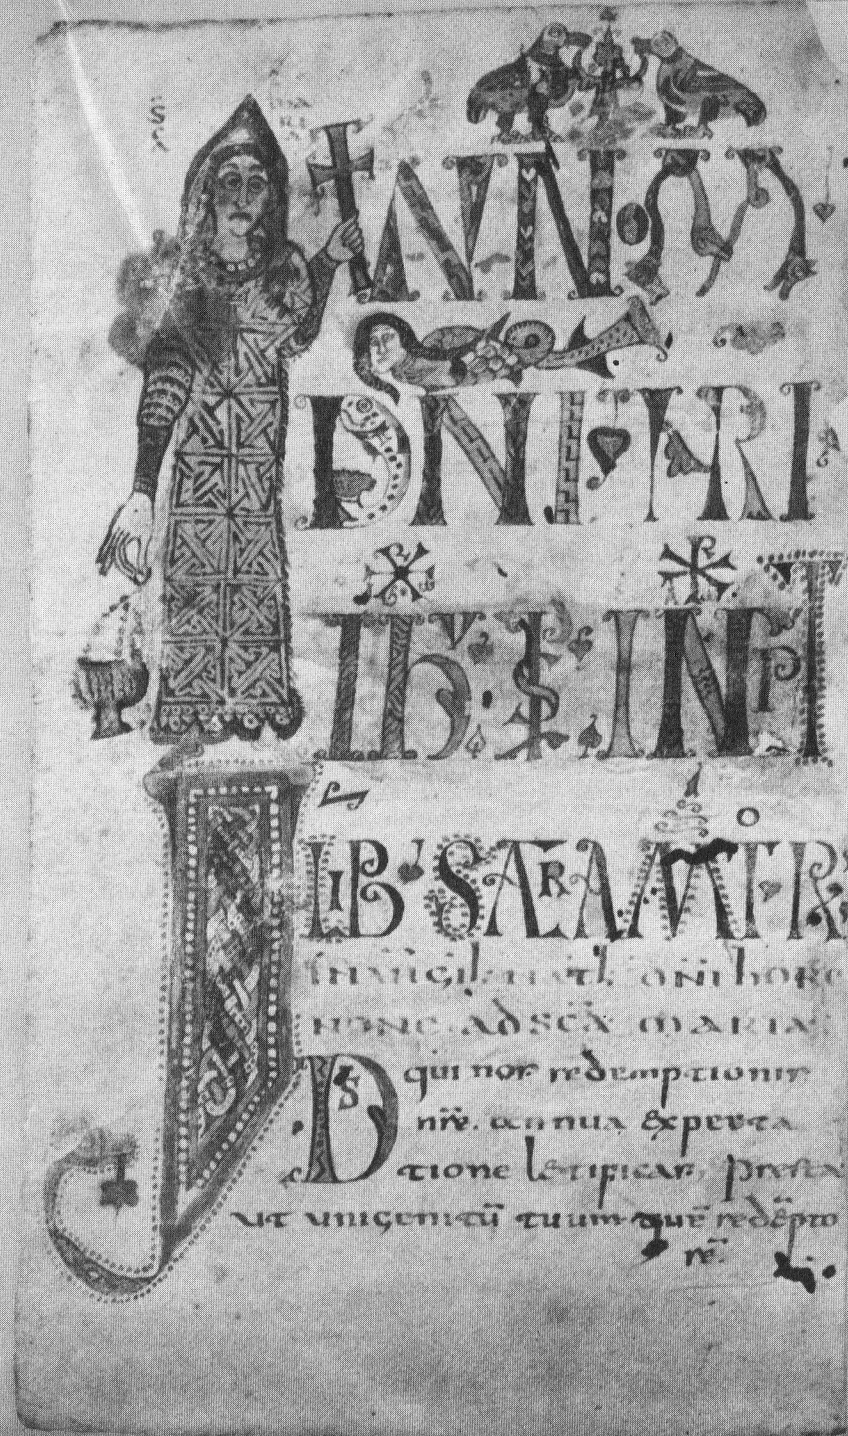 SCA MARIA
IN NOM
DNI NRI
IHU XPI INCPT
LIB SACRAMTOR
nonc ad sca maria
Ds qui nos redemptionis
nre. annua expecta
tione letificas, presta
ut unigenitū tuum quē redēpto
rē.